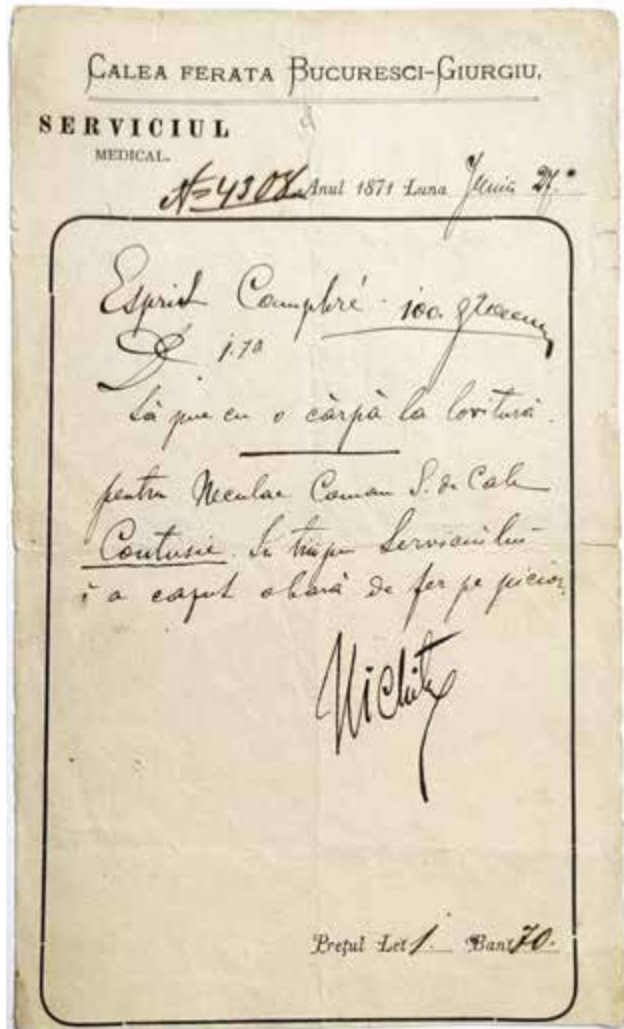 CALEA FERATA BUCURESCI-GIURGIU.
SERVICIUL
MEDICAL.
No 4308 Anul 1871 Luna Juniu 27.
Esprit Camphré 100 gramm
D 1.70
Să pue cu o cârpă la lovitură.
pentru Neculae Coman S. de Cale
Contusie. In timpu Serviciului
i a cazut o bară de fer pe picior,
Nichita
Prețul Lei 1. Bani 70.